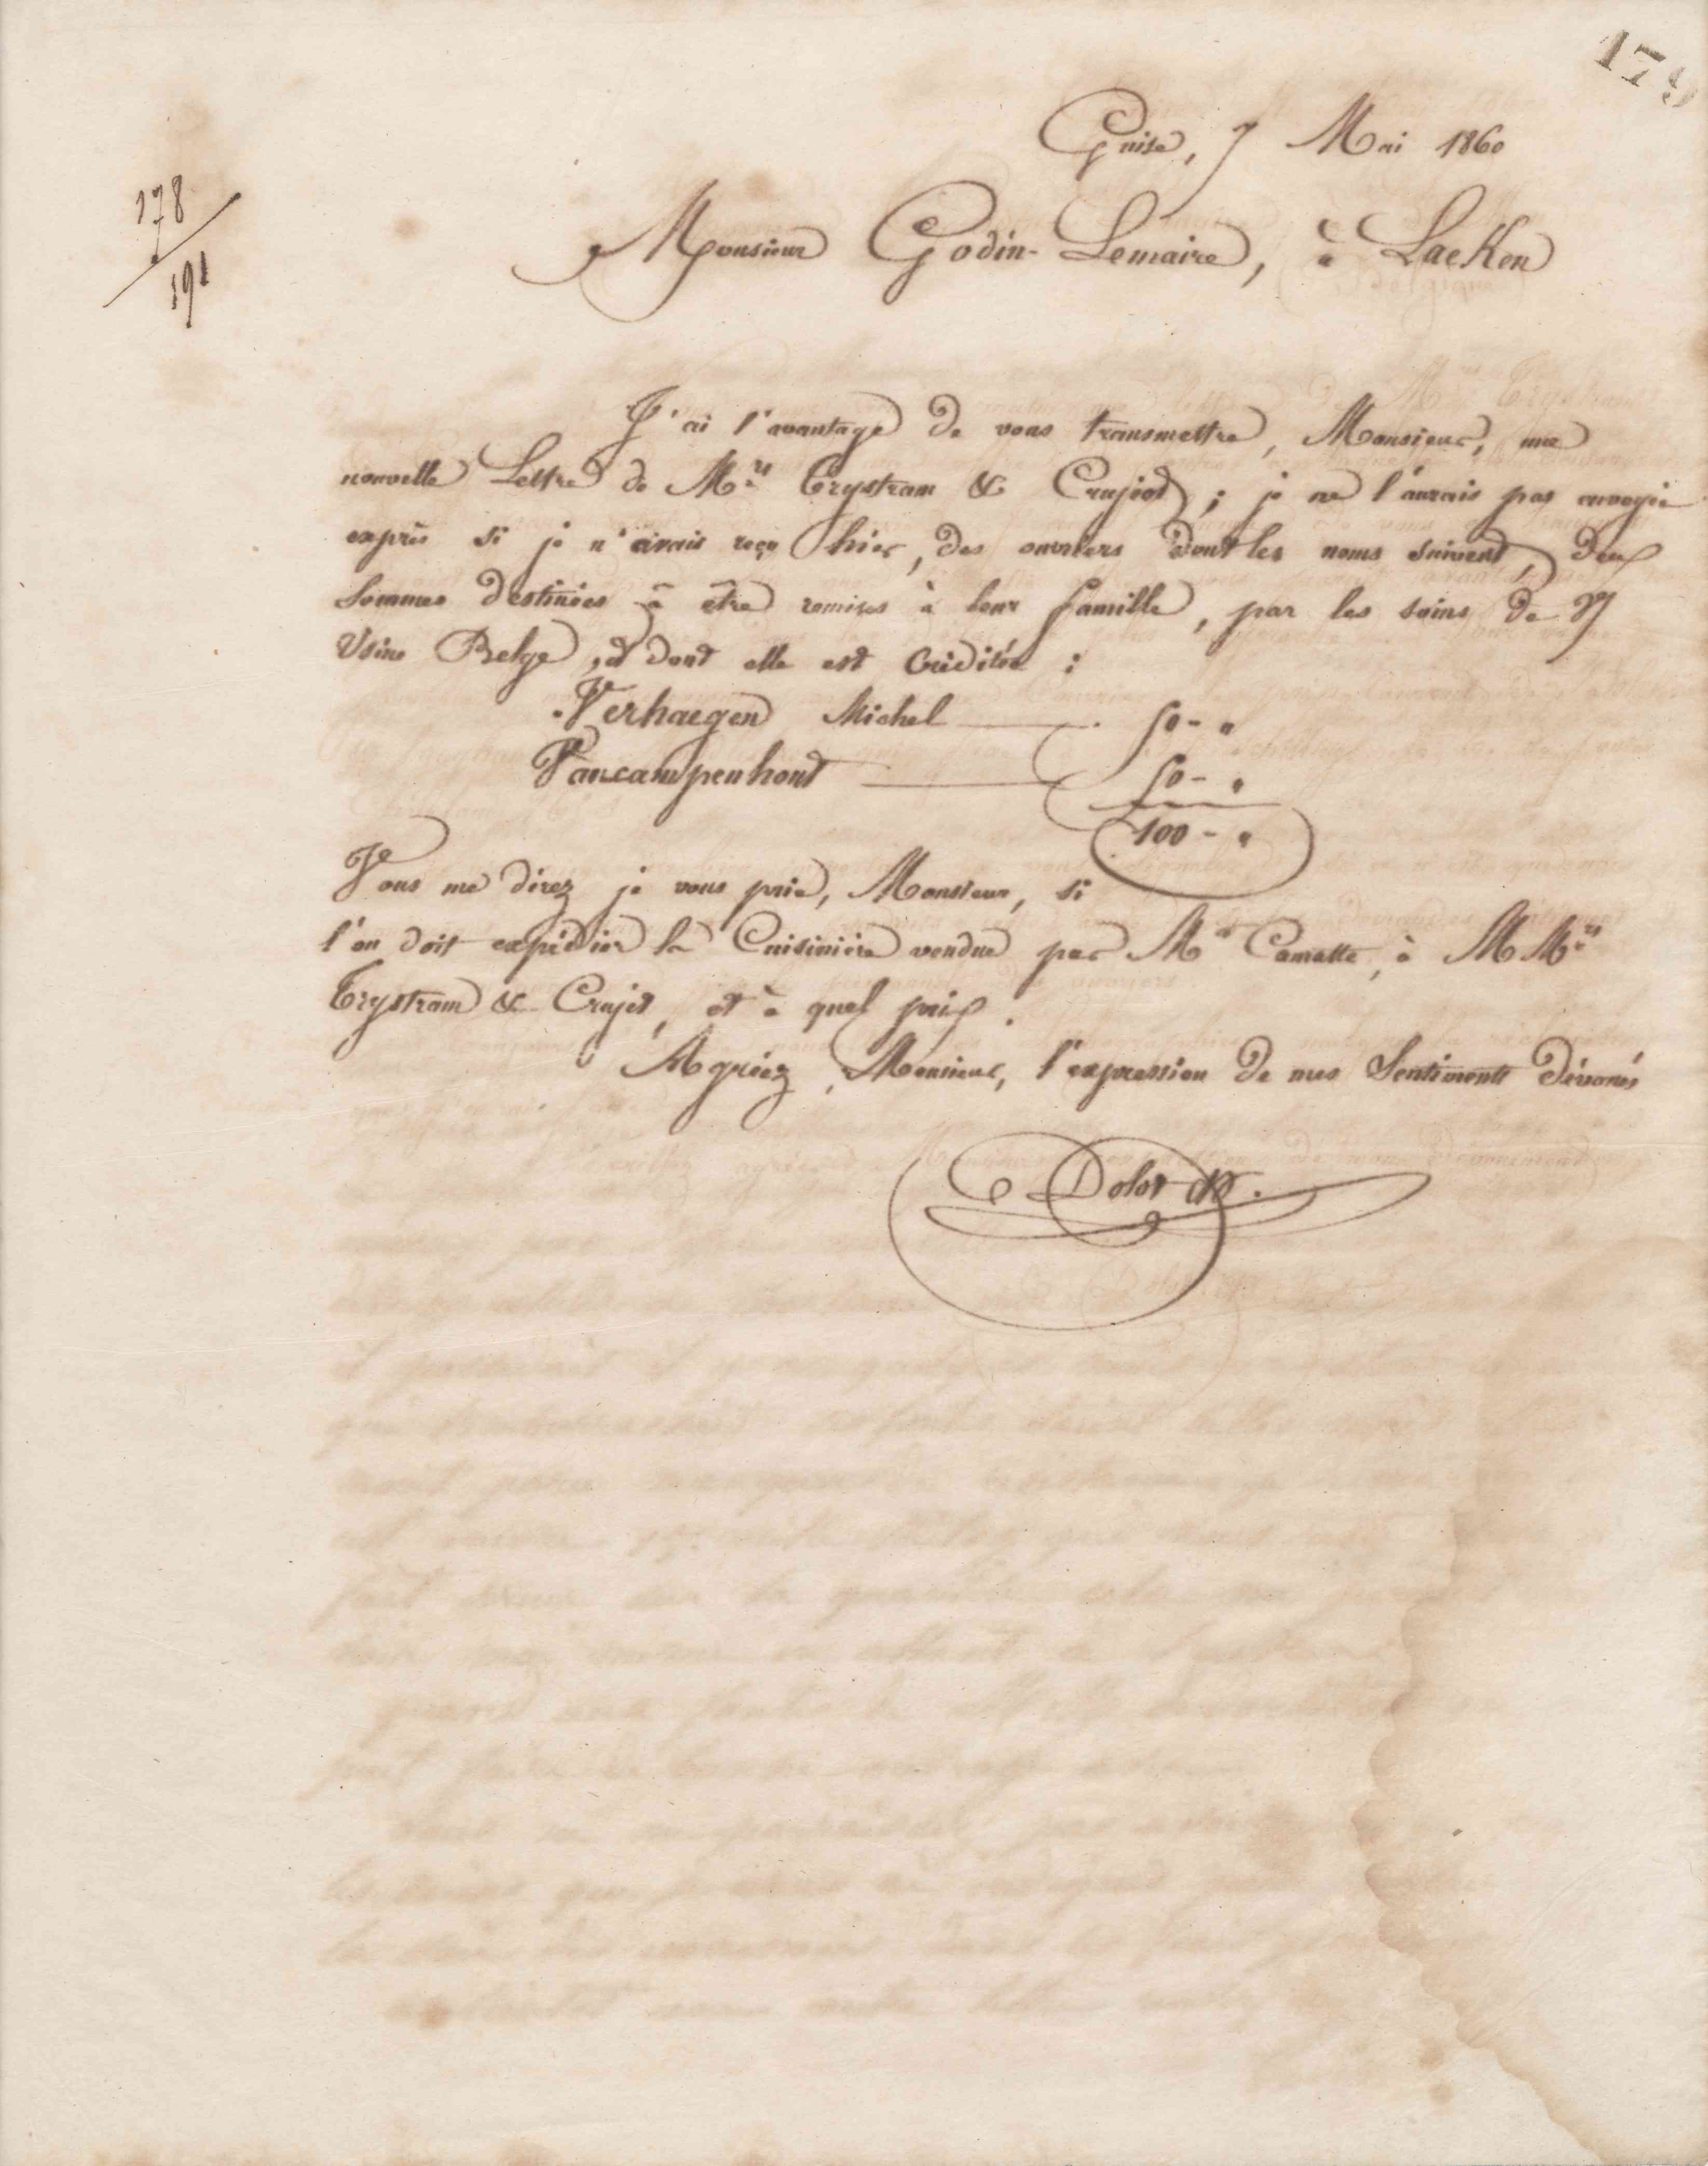 179
178
191
Guise, 7 Mai 1860
Monsieur Godin-Lemaire, à LaeKen
J'ai l'avantage de vous transmettre, Monsieur, une
nouvelle Lettre de Mrs Trystram & Crujeot ; je ne l'aurais pas envoyée
exprès si je n'avais reçu hier, des ouvriers dont les noms suivent, deux
Sommes destinées à être remises à leur famille, par les soins de V/
Usine Belge, et dont elle est Créditée :
Verhaegen Michel 50 - "
Vancampenhout 50 - "
100 - "
Vous me direz je vous prie, Monsieur, si
l'on doit expédier la Cuisinière vendue par Mr Camatte, à MMrs
Trystram & Crujet, et à quel prix.
Agréez, Monsieur, l'expression de mes Sentiments dévoués
Dolot